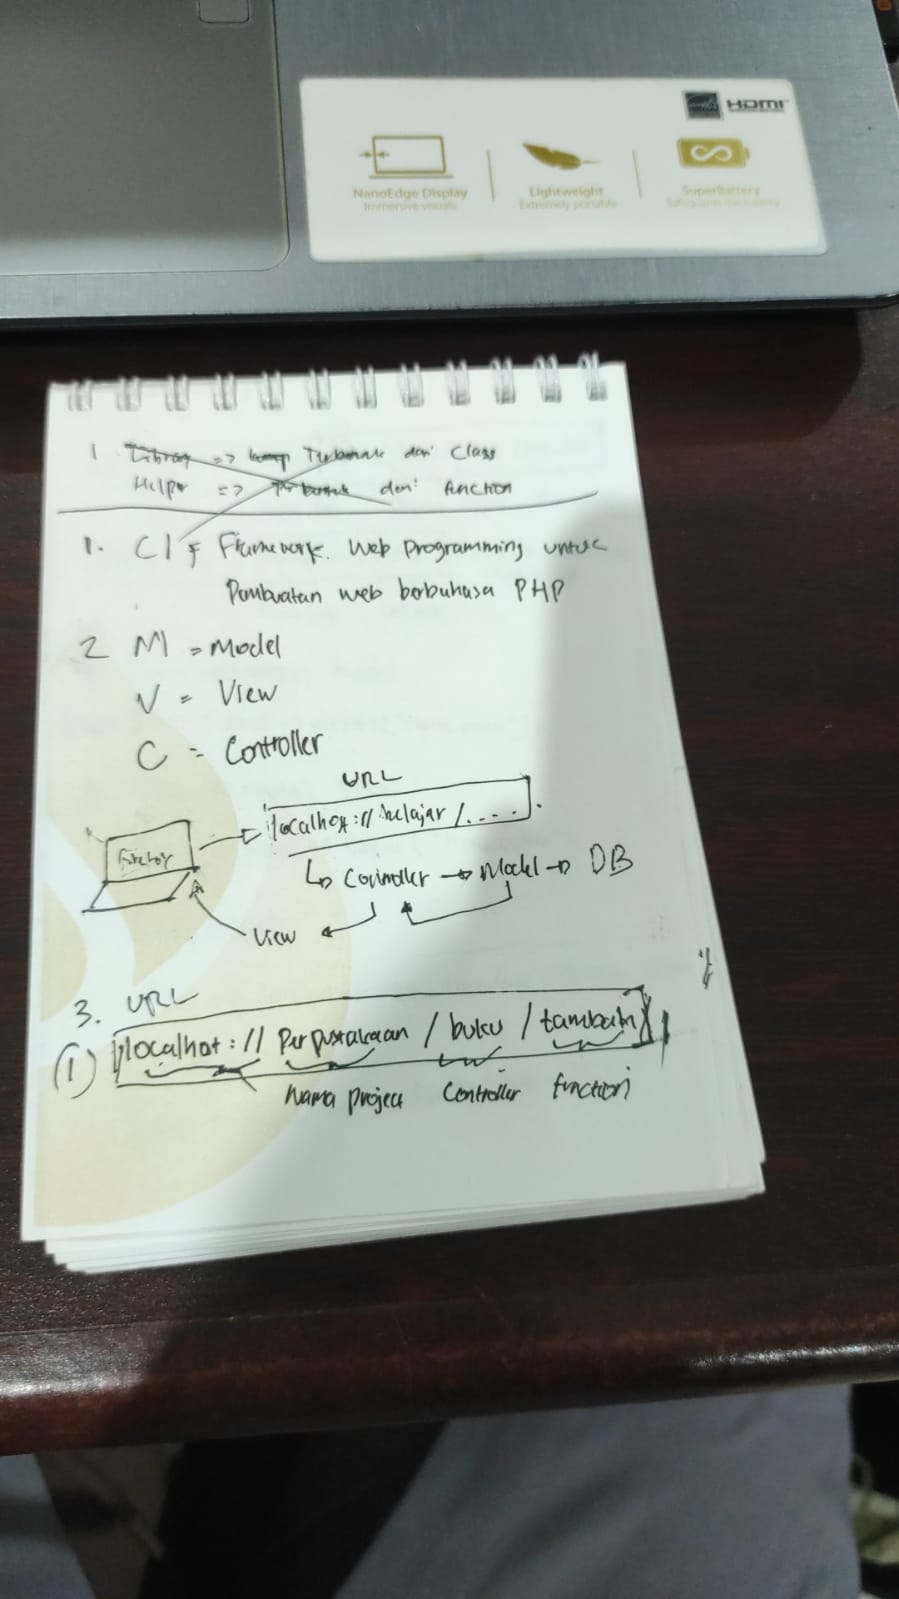 HDMI
NanoEdge Display
Immersive visuals
Lightweight
Extremely portable
SuperBattery
Safeguards the battery
1 Library => Terbentuk dari Class
Helper => Terbentuk dari function
1. CI = Framework Web Programming untuk
Pembuatan web berbahasa PHP
2 M = Model
V = View
C = Controller
URL
localhost://belajar/.....
Controller → Model → DB
View
3. URL
(1) localhost://Perpustakaan/buku/tambah
Nama project Controller function